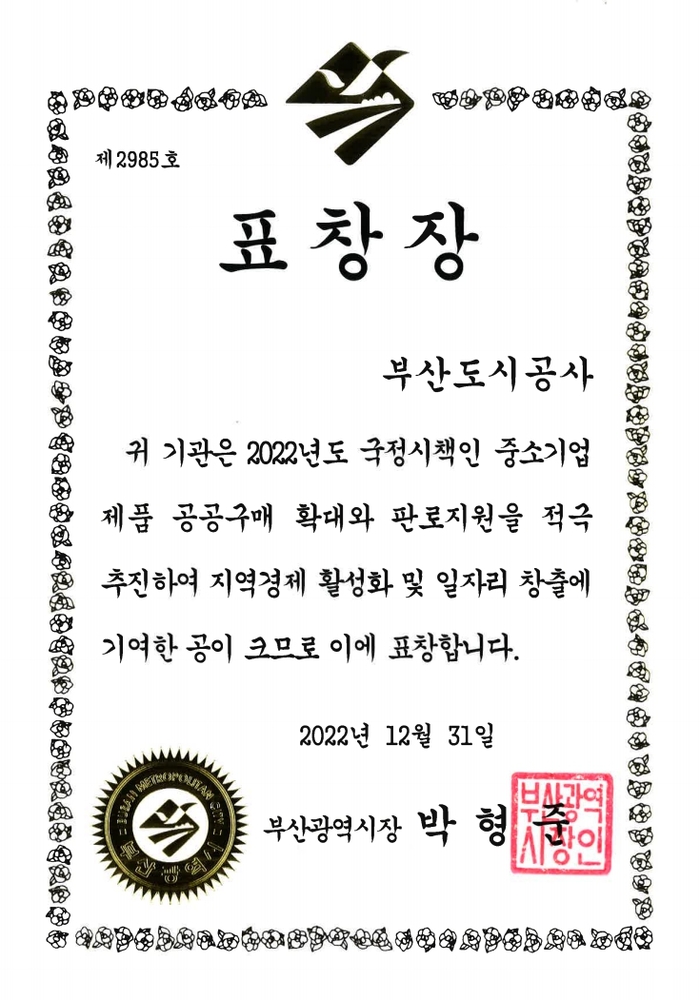 제2985호
표창장
부산도시공사
귀 기관은 2022년도 국정시책인 중소기업
제품 공공구매 확대와 판로지원을 적극
추진하여 지역경제 활성화 및 일자리 창출에
기여한 공이 크므로 이에 표창합니다.
2022년 12월 31일
부산광역시장 박형준
부산광역
시장인
BUSAN METROPOLITAN CITY